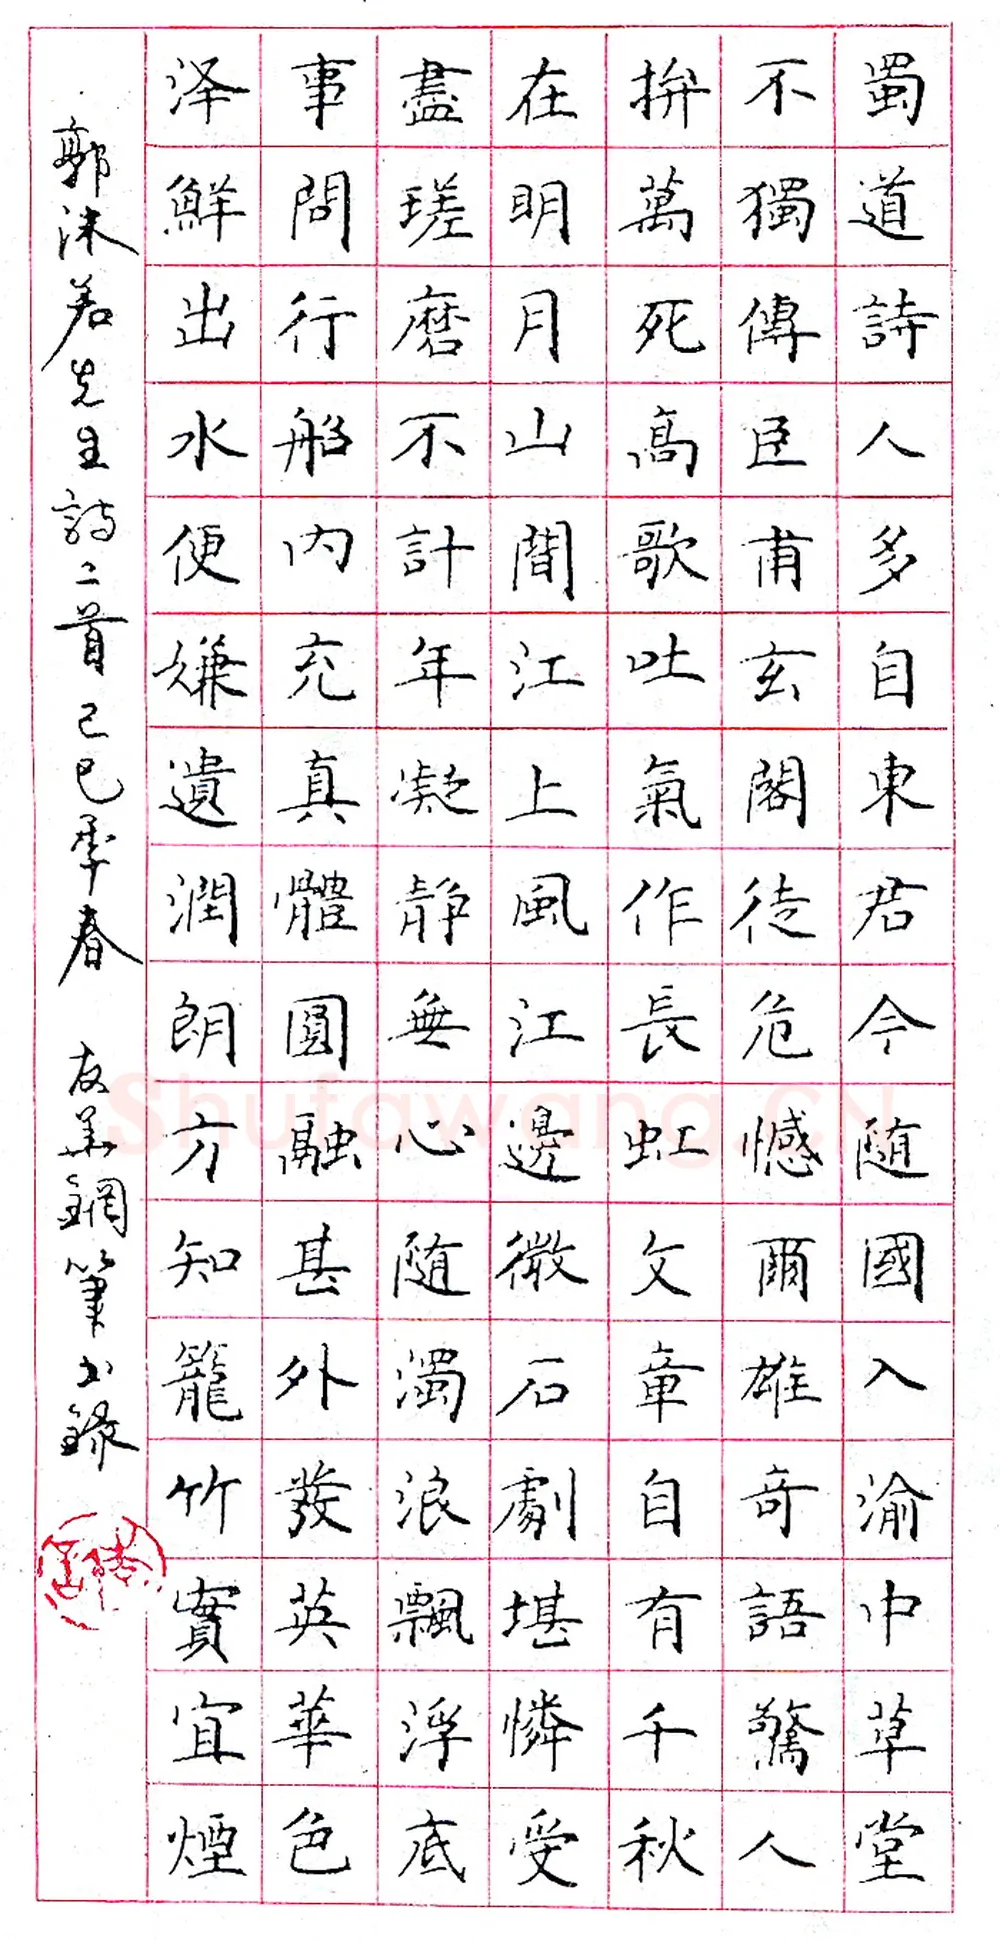 蜀道詩人多自東君今随國入渝中草堂
不獨傳臣甫玄閣徒危憾爾雄奇語驚人
拚萬死高歌吐氣作長虹文章自有千秋
在明月山間江上風江邊微石劇堪憐受
盡瑳磨不計年凝静無心随濁浪飄浮底
事問行船内充真體圓融甚外發英華色
泽鮮出水便嫌遺潤朗方知籠竹實宜煙
郭沫若先生詩二首己巳季春 友華鋼筆书錄
Shufawang.CN